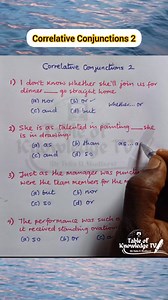 Correlative Conjunctions 2
Correlative Conjunctions 2
1) I don't know whether she'll join us for
dinner ___ go straight home.
(a) nor (b) or ✓ whether...or
(c) and (d) but
2) She is as talented in painting ___ she
is in drawing
(a) as (b) than as...a
(c) and (d) so
3) Just as the manager was punc
were the team members for the
(a) but (b) nor
(c) and (d)
4) The performance was such a
it received standing ovation
(a) so (b) or
Table of
Knowledge TV